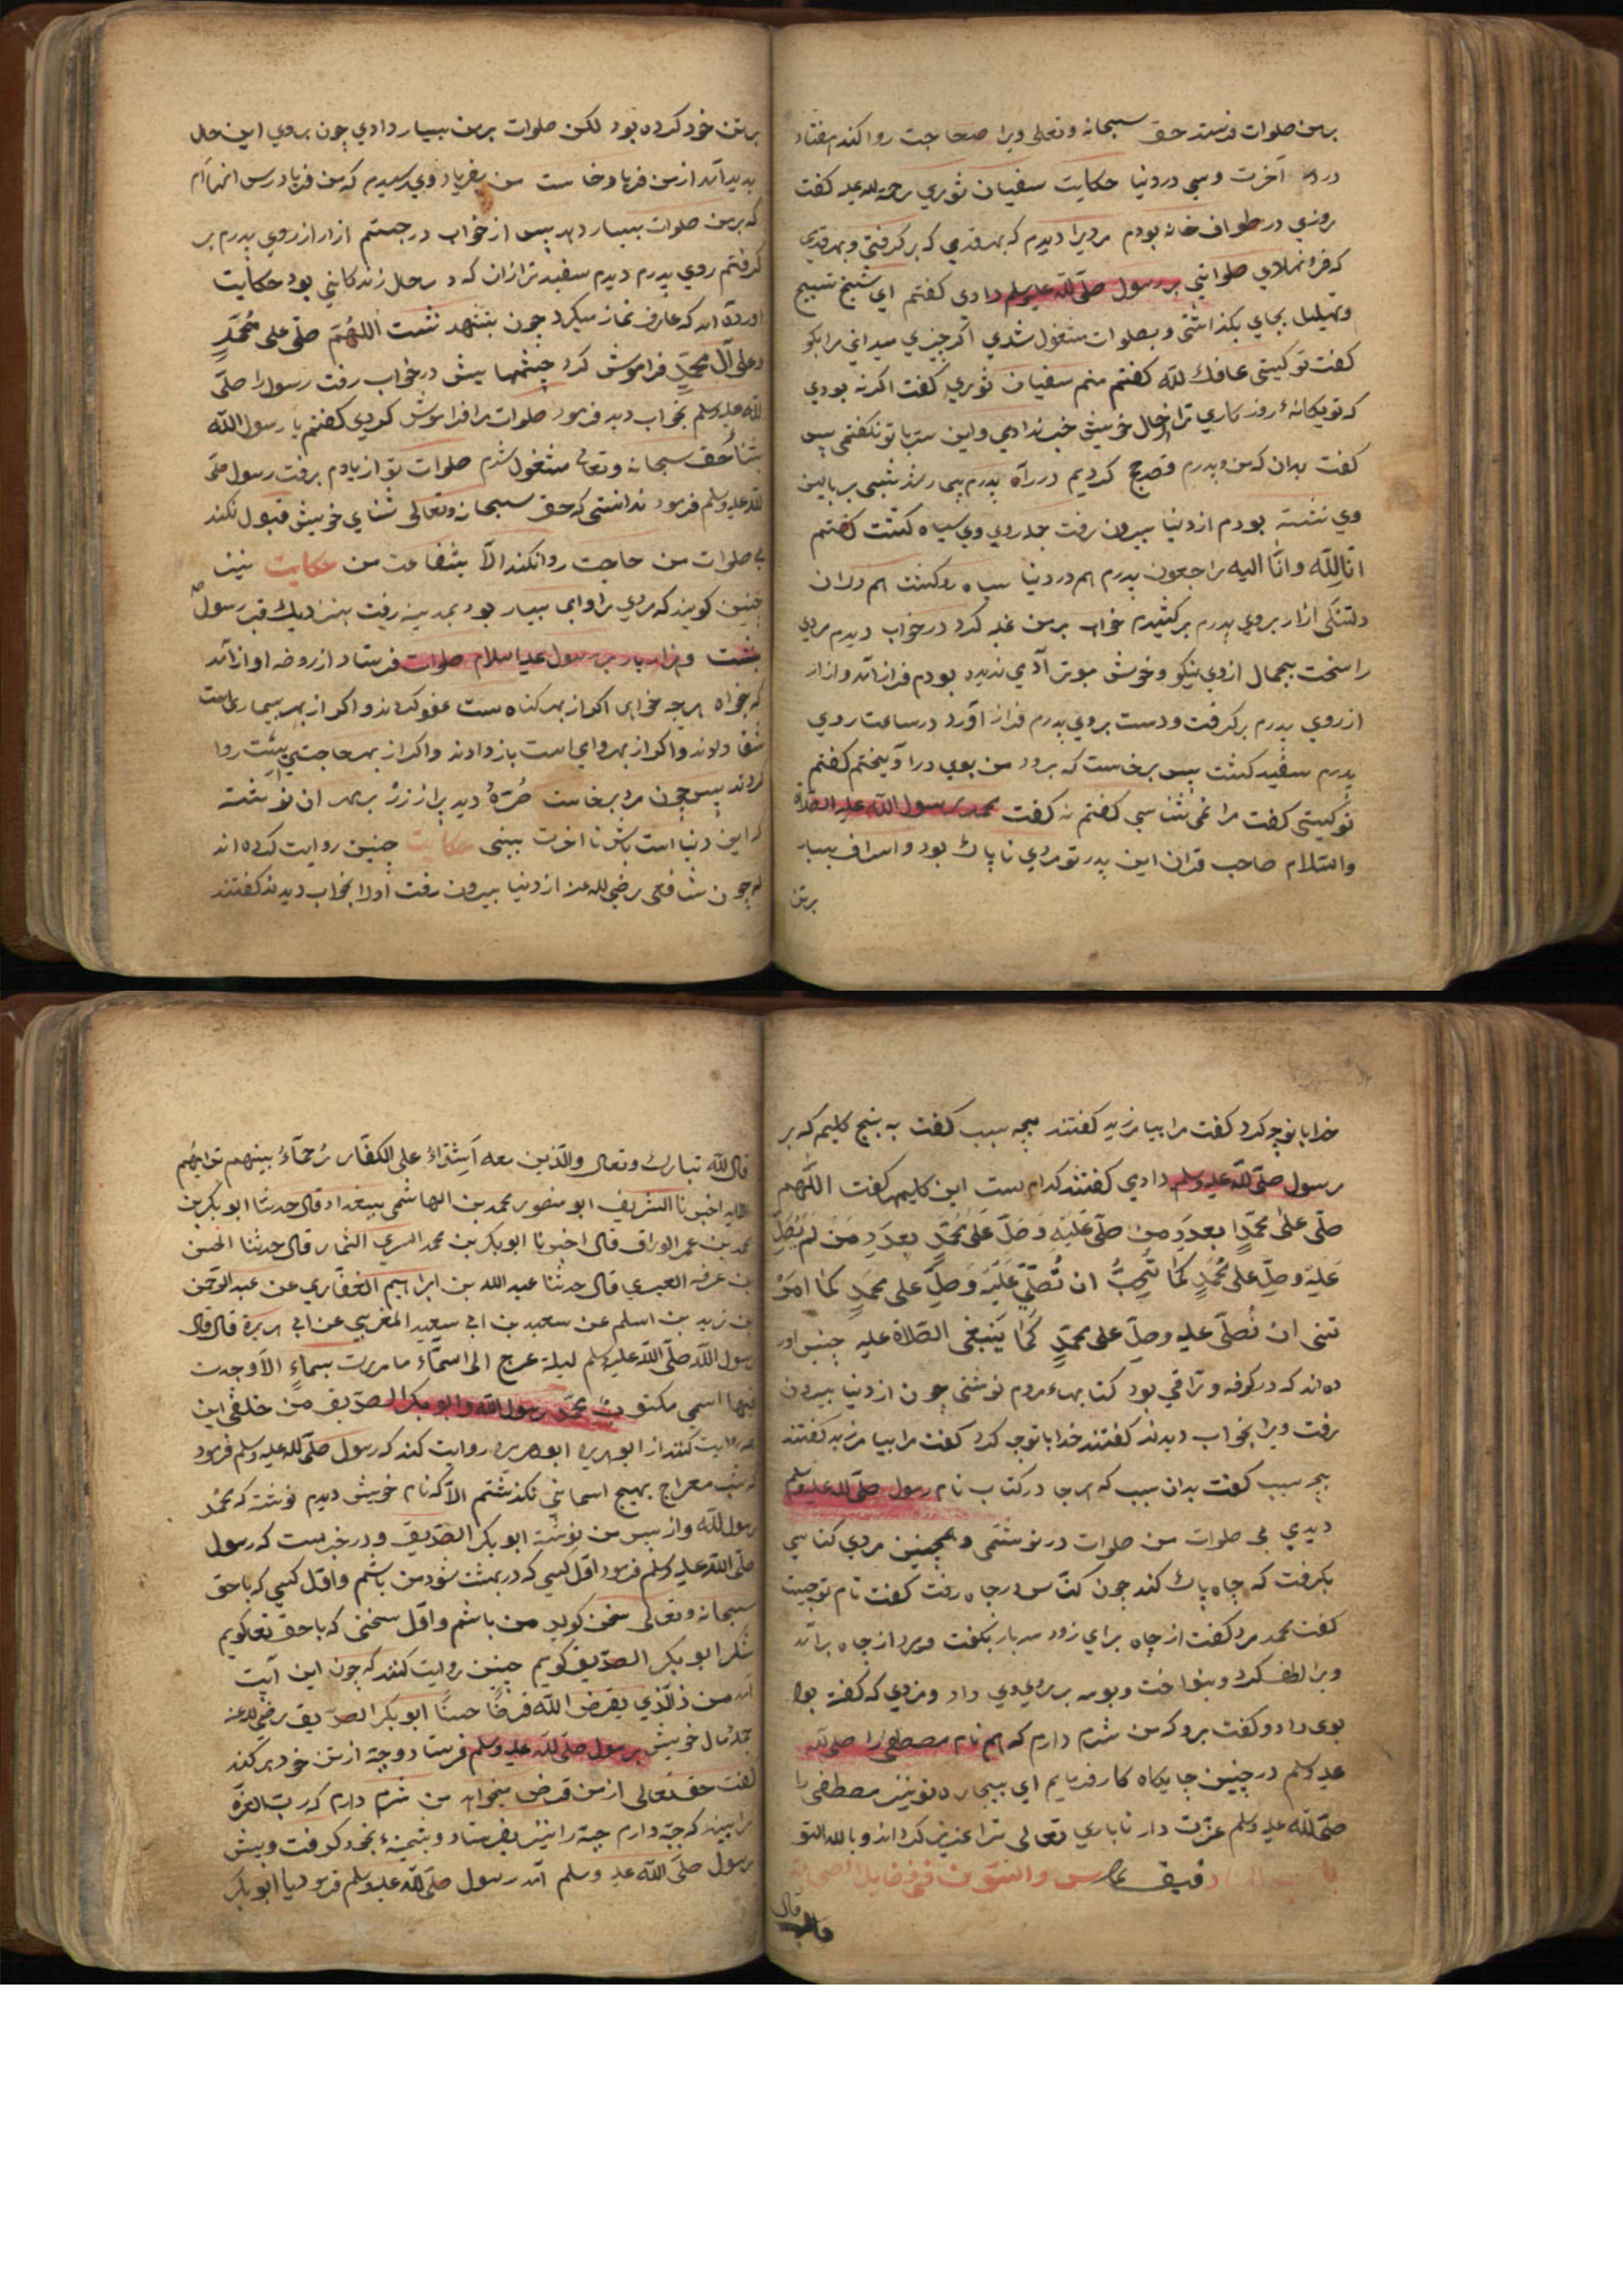 برمن صلوات فرستد حق سبحانه وتعالی ویرا صد حاجت روا کند هفتاد
در آخرت وسی در دنیا حکایت سفیان ثوري رحمة الله علیه کفت
روزي در طواف خانه بودم مردیرا دیدم که بهر قدمي که برکرفتي وبهر قدمي
که فرو نهادي صلواتي بر رسول صلّی اللّه علیه وسلم دادي کفتم اي شیخ تسبیح
وتهلیل بجاي بکذاشتی و بصلوات مشغول شدي اکر چیزي میداني مرا بکو
کفت تو کیستی عافاك اللّه کفتم منم سفیان ثوري کفت اکر نه بودي
که تو یکانهٔ روزکاري ترا از حال خویش خبر ندادمي واین سر با تو نکفتمي پس
کفت بدان که من وپدرم قصد حج کردیم در راه پدرم بیمار شد شبی بر بالین
وي نشسته بودم از دنیا بیرون رفت جمله روي وي سیاه کشت کفتم
انّا للّه وانّا الیه راجعون پدرم هم در دنیا سیاه رو کشت هم دران
دلتنکی ازار بروي پدرم برکشیدم خواب برمن غلبه کرد در خواب دیدم مردي
را سخت بجمال ازوي نیکو وخوش بوتر آدمي ندیده بودم فراز آمد وازار
از روي پدرم برکرفت ودست بروي پدرم فراز آورد در ساعت روي
پدرم سفید کشت پس برخاست که برود من بوي درآویختم کفتم
تو کیستی کفت مرا نمی شناسي کفتم نه کفت محمد رسول اللّه علیه الصلاة
والسّلام صاحب قران این پدر تو مردي ناپاك بود واسراف بسیار
برتن
برتن خود کرده بود لکن صلوات برمن بسیار دادي چون بروي این حال
پدید آمد از من فریاد خاست من بفریاد وي رسیدم که من فریاد رس انهاام
که برمن صلوات بسیار دهد پس از خواب درجستم ازار از روي پدرم بر
کرفتم روي پدرم دیدم سفید تر ازان که در حال زندکاني بود حکایت
اورده اند که عارفی نماز میکرد چون بتشهد نشست اللّهُمّ صلّی علی مُحمّدٍ
وعلی آل محمّدٍ فراموش کرد چشمها بیش در خواب رفت رسول را صلّی
اللّه علیه وسلم بخواب دید فرمود صلوات مرا فراموش کردي کفتم یا رسول اللّه
بثناء حق سبحانه وتعالی مشغول شدم صلوات تو از یادم برفت رسول صلّی
اللّه علیه وسلم فرمود ندانستی که حق سبحانه وتعالی ثناي خویش قبول نکند
بی صلوات من حاجت روا نکند الاّ بشفاعت من حکایت نیز
چنین کویند که مردي را وامي بسیار بود بمدینه رفت بنزدیك قبر رسول
بنشست وهزار بار بر رسول علیه السلام صلوات فرستاد از روضه اواز آمد
که بخواه هر چه خواهی اکر از بهر کناهست عفو کردند واکر از بهر بیماري است
شفا دادند واکر از بهر وامي است باز دادند واکر از بهر حاجتي است روا
کردند پس چون مرد برخاست صُرّهٔ دید پر از زرْ بر سر ان نوشته
که این دنیا است باش تا آخرت ببینی حکایت چنین روایت کرده اند
که چون شافعی رضی الله عنه از دنیا بیرون رفت اورا بخواب دیدند کفتند
خدا با تو چه کرد کفت مرا بیامرزید کفتند بچه سبب کفت به پنج کلیم که بر
رسول صلّی اللّه علیه وسلم دادي کفتند کدام ست این کلیم کفت اللّهم
صلّی علیٰ محمّدٍ بعدد من صلّی عَلَیْهِ وَصلِّ عَلیٰ مُحَمّدٍ بعدَدِ مَنْ لَمْ یُصَلِّ
عَلَیْهِ وصلّ علیٰ مُحَمّدٍ کمَا تُحِبُّ ان تُصَلّی عَلَیْهِ وَصلِّ علی محمدٍ کما امَرْ
تنی ان نُصَلّی علیه وصلّ علی محمّدٍ کَمَا یَنبَغی الصّلاة علیهِ چنین اور
ده اند که در کوفه ورّاقي بود کتابهاء مردم نوشتی چون از دنیا بیرون
رفت ویرا بخواب دیدند کفتند خدا با تو چه کرد کفت مرا بیامرزید کفتند
بچه سبب کفت بدان سبب که هرجا در کتاب نام رسول صلّی الله علیه وسلم
دیدي بی صلوات من صلوات در نوشتمی وهمچنین مردي کناسي
بکرفت که چاه پاك کند چون کنّاس در چاه رفت کفت نام تو چیست
کفت محمد مرد کفت از چاه براي زود سه بار بکفت ومرد از چاه برآمد
ویرا لطف کرد وبنواخت وبوسه بر روي وي داد ومزدي که کفته بود
بوی داد وکفت برو که من شرم دارم که هم نام مصطفی را صلی اللّه
علیه وسلم در چنین جایکاه کار فرمایم اي بیچاره تو نیز مصطفی را
صلّی اللّه علیه وسلم عزّت دار تا باري تعالی ترا عزیز کرداند وبالله التو
فیق
قال
قال اللّه تبارك وتعالی والّذین معه اَشِدّاءُ علی الکفّار رُحَمآءُ بینهم تریٰهُم
الایه اخبرنا الشریف ابو منصور محمد بن الهاشمي ببغداد قال حدثنا ابو بکر بن
محمد بن عمر الوراق قال اخبرنا ابو بکر بن محمد السري التمار قال حدثنا الحسن
بن عرفه العبدي قال حدثنا عبد الله بن ابراهیم الغفّاري عن عبد الرحمن
بن زید بن اسلم عن سعید بن ابي سعید المقبري عن ابي هریرة قال قال
رسول اللّه صلّی اللّه علیه وسلم لیلة عرج الی السمآء ما مررت بسمآءٍ الاّ وجدت
فیها اسمي مکتوبٌ محمّد رسول اللّه وابو بکر الصدّیق من خلفي این
روایت کنند از ابو هریره ابو هریره روایت کند که رسول صلّی اللّه علیه وسلم فرمود
که شب معراج بهیچ اسماني نکذشتم الاّ که نام خویش دیدم نوشته که محمّدٌ
رسول اللّه واز پس من نوشته ابو بکر الصّدّیق ودر خبرست که رسول
صلّی اللّه علیه وسلم فرمود اوّل کسي که در بهشت شود من باشم واوّل کسي که با حق
سبحانه وتعالی سخن کوید من باشم واوّل سخنی که با حق تعالی کویم
شکر ابو بکر الصدّیق کویم چنین روایت کنند که چون این آیت
آمد من ذالّذي یقرض اللّه قرضًا حسنًا ابو بکر الصدّیق رضی الله عنه
جملهٔ مال خویش برسول صلّی اللّه علیه وسلم فرستاد وجبّه از تن خود برکند
کفت حق تعالی از من قرض میخواهد من شرم دارم که رب العزّة
مرا بیند که جبّه دارم جبّه را نیز بفرستاد وپشمینهٔ بخود کرفت وبیش
رسول صلّی اللّه علیه وسلم آمد رسول صلّی اللّه علیه وسلم فرمود یا ابو بکر